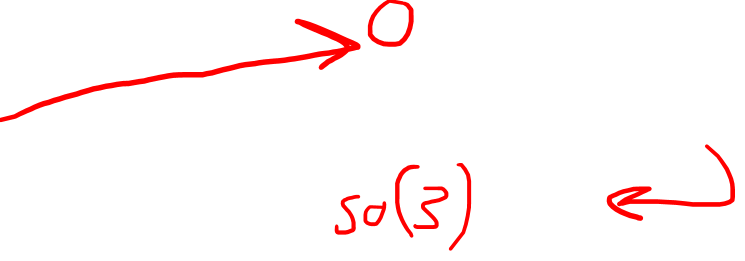 0
so(3)